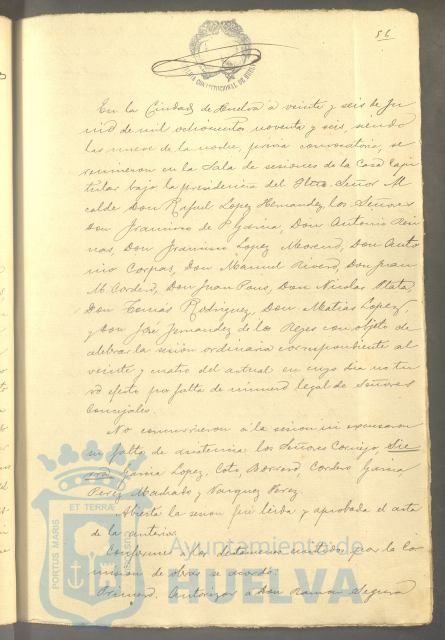 56
En la Ciudad de Huelva a veinte y seis de Ju
nio de mil ochocientos noventa y seis, siendo
las nueve de la noche, previa convocatoria, se
reunieron en la Sala de sesiones de la Casa Capi
tular bajo la presidencia del Iltmo. Señor Al
calde Don Rafael Lopez Hernandez, los Señores
Don Francisco de P. Garcia, Don Antonio
Don Francisco Lopez Moreno, Don Anto
nio Corpas, Don Manuel Rivero, Don Juan
M. Cordero, Don Juan Pons, Don Nicolas Mata,
Don Tomas Rodriguez, Don Matias Lopez,
y Don José Fernandez de los Reyes con objeto de
celebrar la sesión ordinaria correspondiente al
veinte y cuatro del actual en cuyo dia no tu
vo efecto por falta de número legal de Señores
Concejales.
No concurrieron a la sesion ni escusaron
su falta de asistencia los Señores
Garcia Lopez, Coto, Borrero, Cordero Garcia,
Perez Machado y Vazquez Perez.
Abierta la sesion fué leida y aprobada el acta
de la anterior.
Conforme a los dictámenes emitidos por la Co
mision de obras se acordó:
Primero. Autorizar a Don Ramon Segura
PORTUS MARIS
ET TERRÆ
Ayuntamiento de
HUELVA